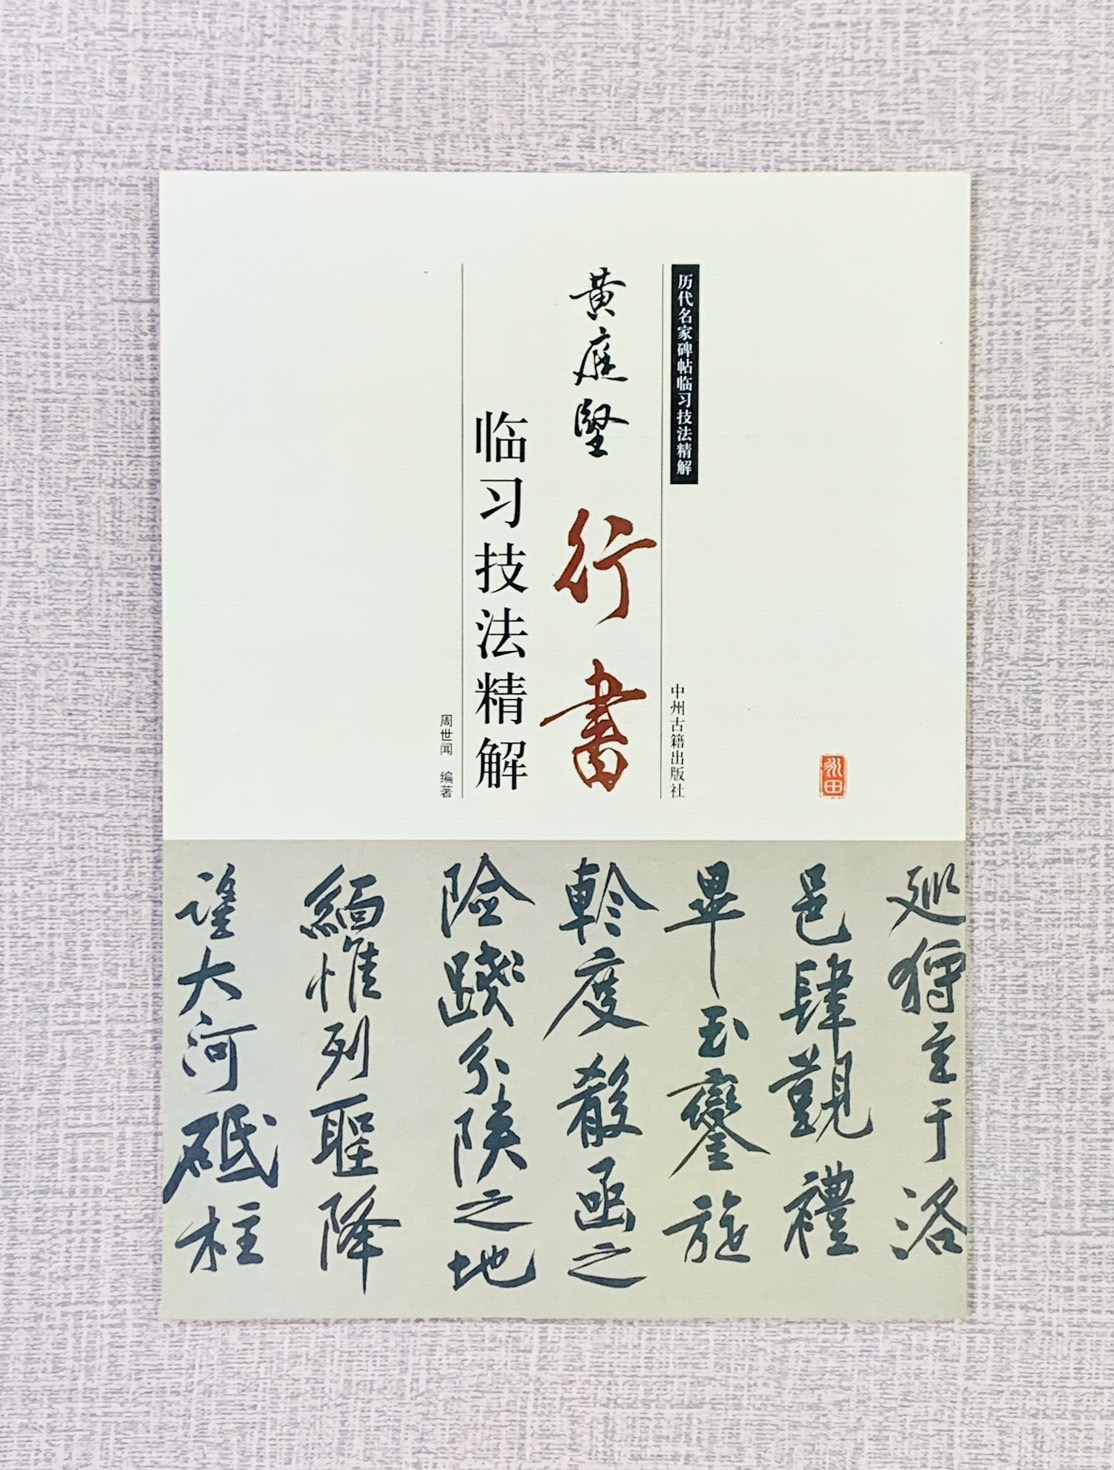 历代名家碑帖临习技法精解
中州古籍出版社
黄庭堅
行書
临习技法精解
周世闻 编著
巡狩至于洛
邑肆觐禮
畢玉鑾旋
軫度殽函之
險踐分陝之地
緬惟列聖降
望大河砥柱